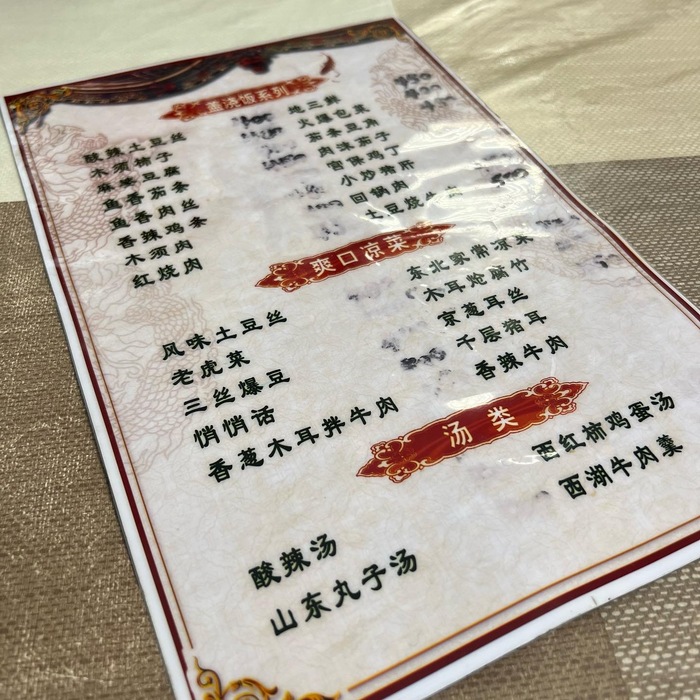 盖浇饭系列
酸辣土豆丝
木须柿子
麻婆豆腐
鱼香茄条
鱼香肉丝
香辣鸡条
木须肉
红烧肉
地三鲜
火爆包菜
茄条豆角
肉沫茄子
宫保鸡丁
小炒猪肝
回锅肉
土豆烧牛肉
爽口凉菜
风味土豆丝
老虎菜
三丝爆豆
悄悄话
香葱木耳拌牛肉
东北家常凉菜
木耳炝腐竹
京葱耳丝
千层猪耳
香辣牛肉
汤类
酸辣汤
山东丸子汤
西红柿鸡蛋汤
西湖牛肉羹